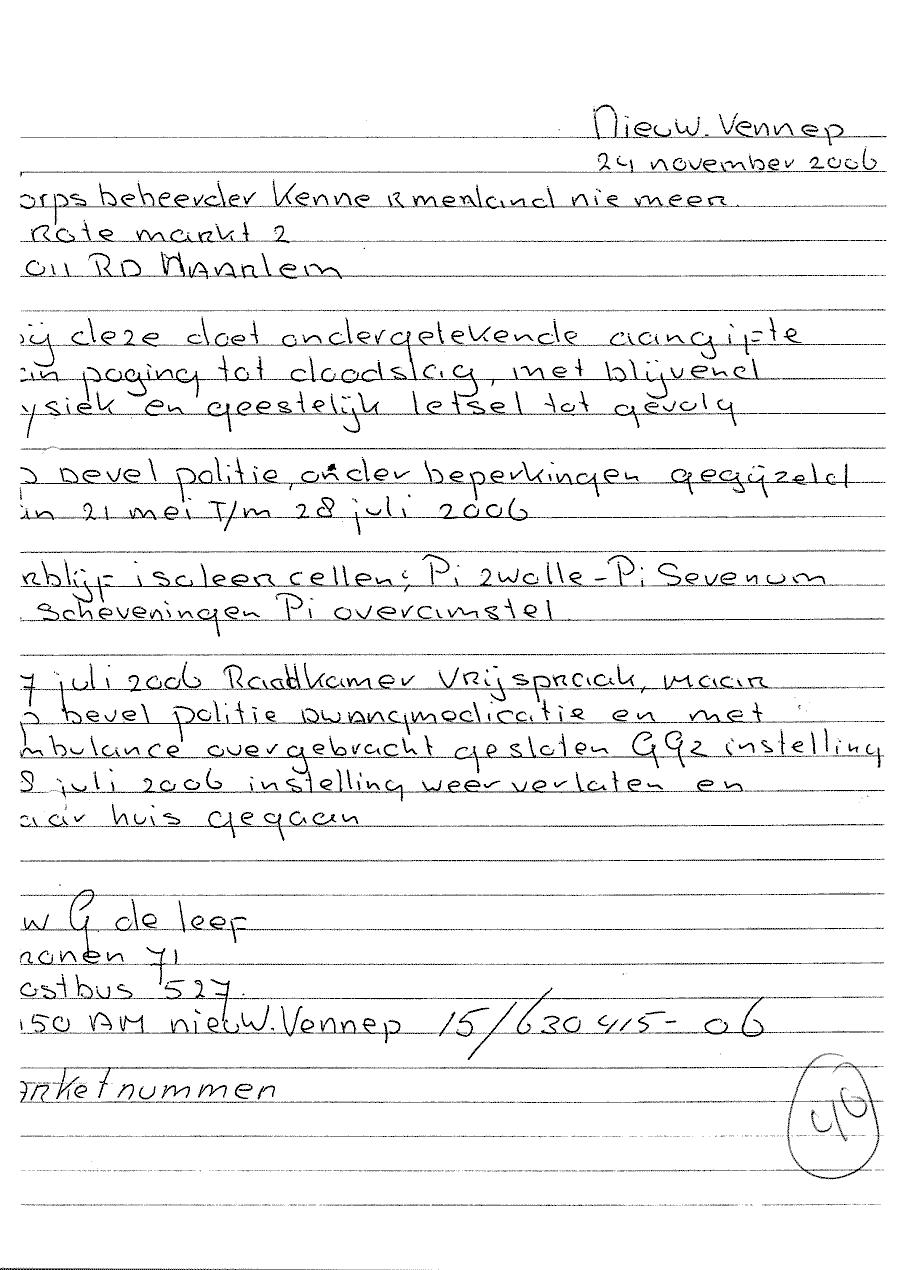 Nieuw. Vennep
24 november 2006
orps beheerder Kennermenland nie meer.
Rote markt 2
011 RD HAARlem
ij deze doet ondergetekende aangifte
an poging tot doodslag, met blijvend
ysiek en geestelijk letsel tot gevolg
p bevel politie, onder beperkingen gegijzeld
an 21 mei T/m 28 juli 2006
rblijf isoleer cellen; Pi zwolle - Pi Sevenum
Scheveningen Pi overamstel
7 juli 2006 Raadkamer vrijspraak, maar
p bevel politie dwangmedicatie en met
mbulance overgebracht gesloten GGz instelling
8 juli 2006 instelling weer verlaten en
aar huis gegaan
w G de leef
ranen 71
ostbus 527.
150 AM nieuw.Vennep 15/630415-06
arketnummer
40